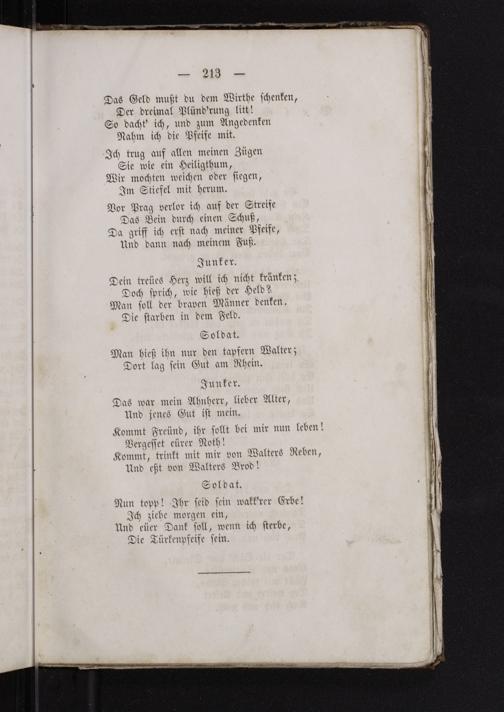 — 213 —
Das Geld mußt du dem Wirthe schenken,
Der dreimal Plünd'rung litt!
So dacht' ich, und zum Angedenken
Nahm ich die Pfeife mit.
Ich trug auf allen meinen Zügen
Sie wie ein Heiligthum,
Wir mochten weichen oder siegen,
Im Stiefel mit herum.
Vor Prag verlor ich auf der Streife
Das Bein durch einen Schuß,
Da griff ich erst nach meiner Pfeife,
Und dann nach meinem Fuß.
Junker.
Dein treües Herz will ich nicht kränken;
Doch sprich, wie hieß der Held?
Man soll der braven Männer denken.
Die starben in dem Feld.
Soldat.
Man hieß ihn nur den tapfern Walter;
Dort lag sein Gut am Rhein.
Junker.
Das war mein Ahnherr, lieber Alter,
Und jenes Gut ist mein.
Kommt Freünd, ihr sollt bei mir nun leben!
Vergesset eürer Noth!
Kommt, trinkt mit mir von Walters Reben,
Und eßt von Walters Brod!
Soldat.
Nun topp! Ihr seid sein wakk'rer Erbe!
Ich ziehe morgen ein,
Und eüer Dank soll, wenn ich sterbe,
Die Türkenpfeife sein.